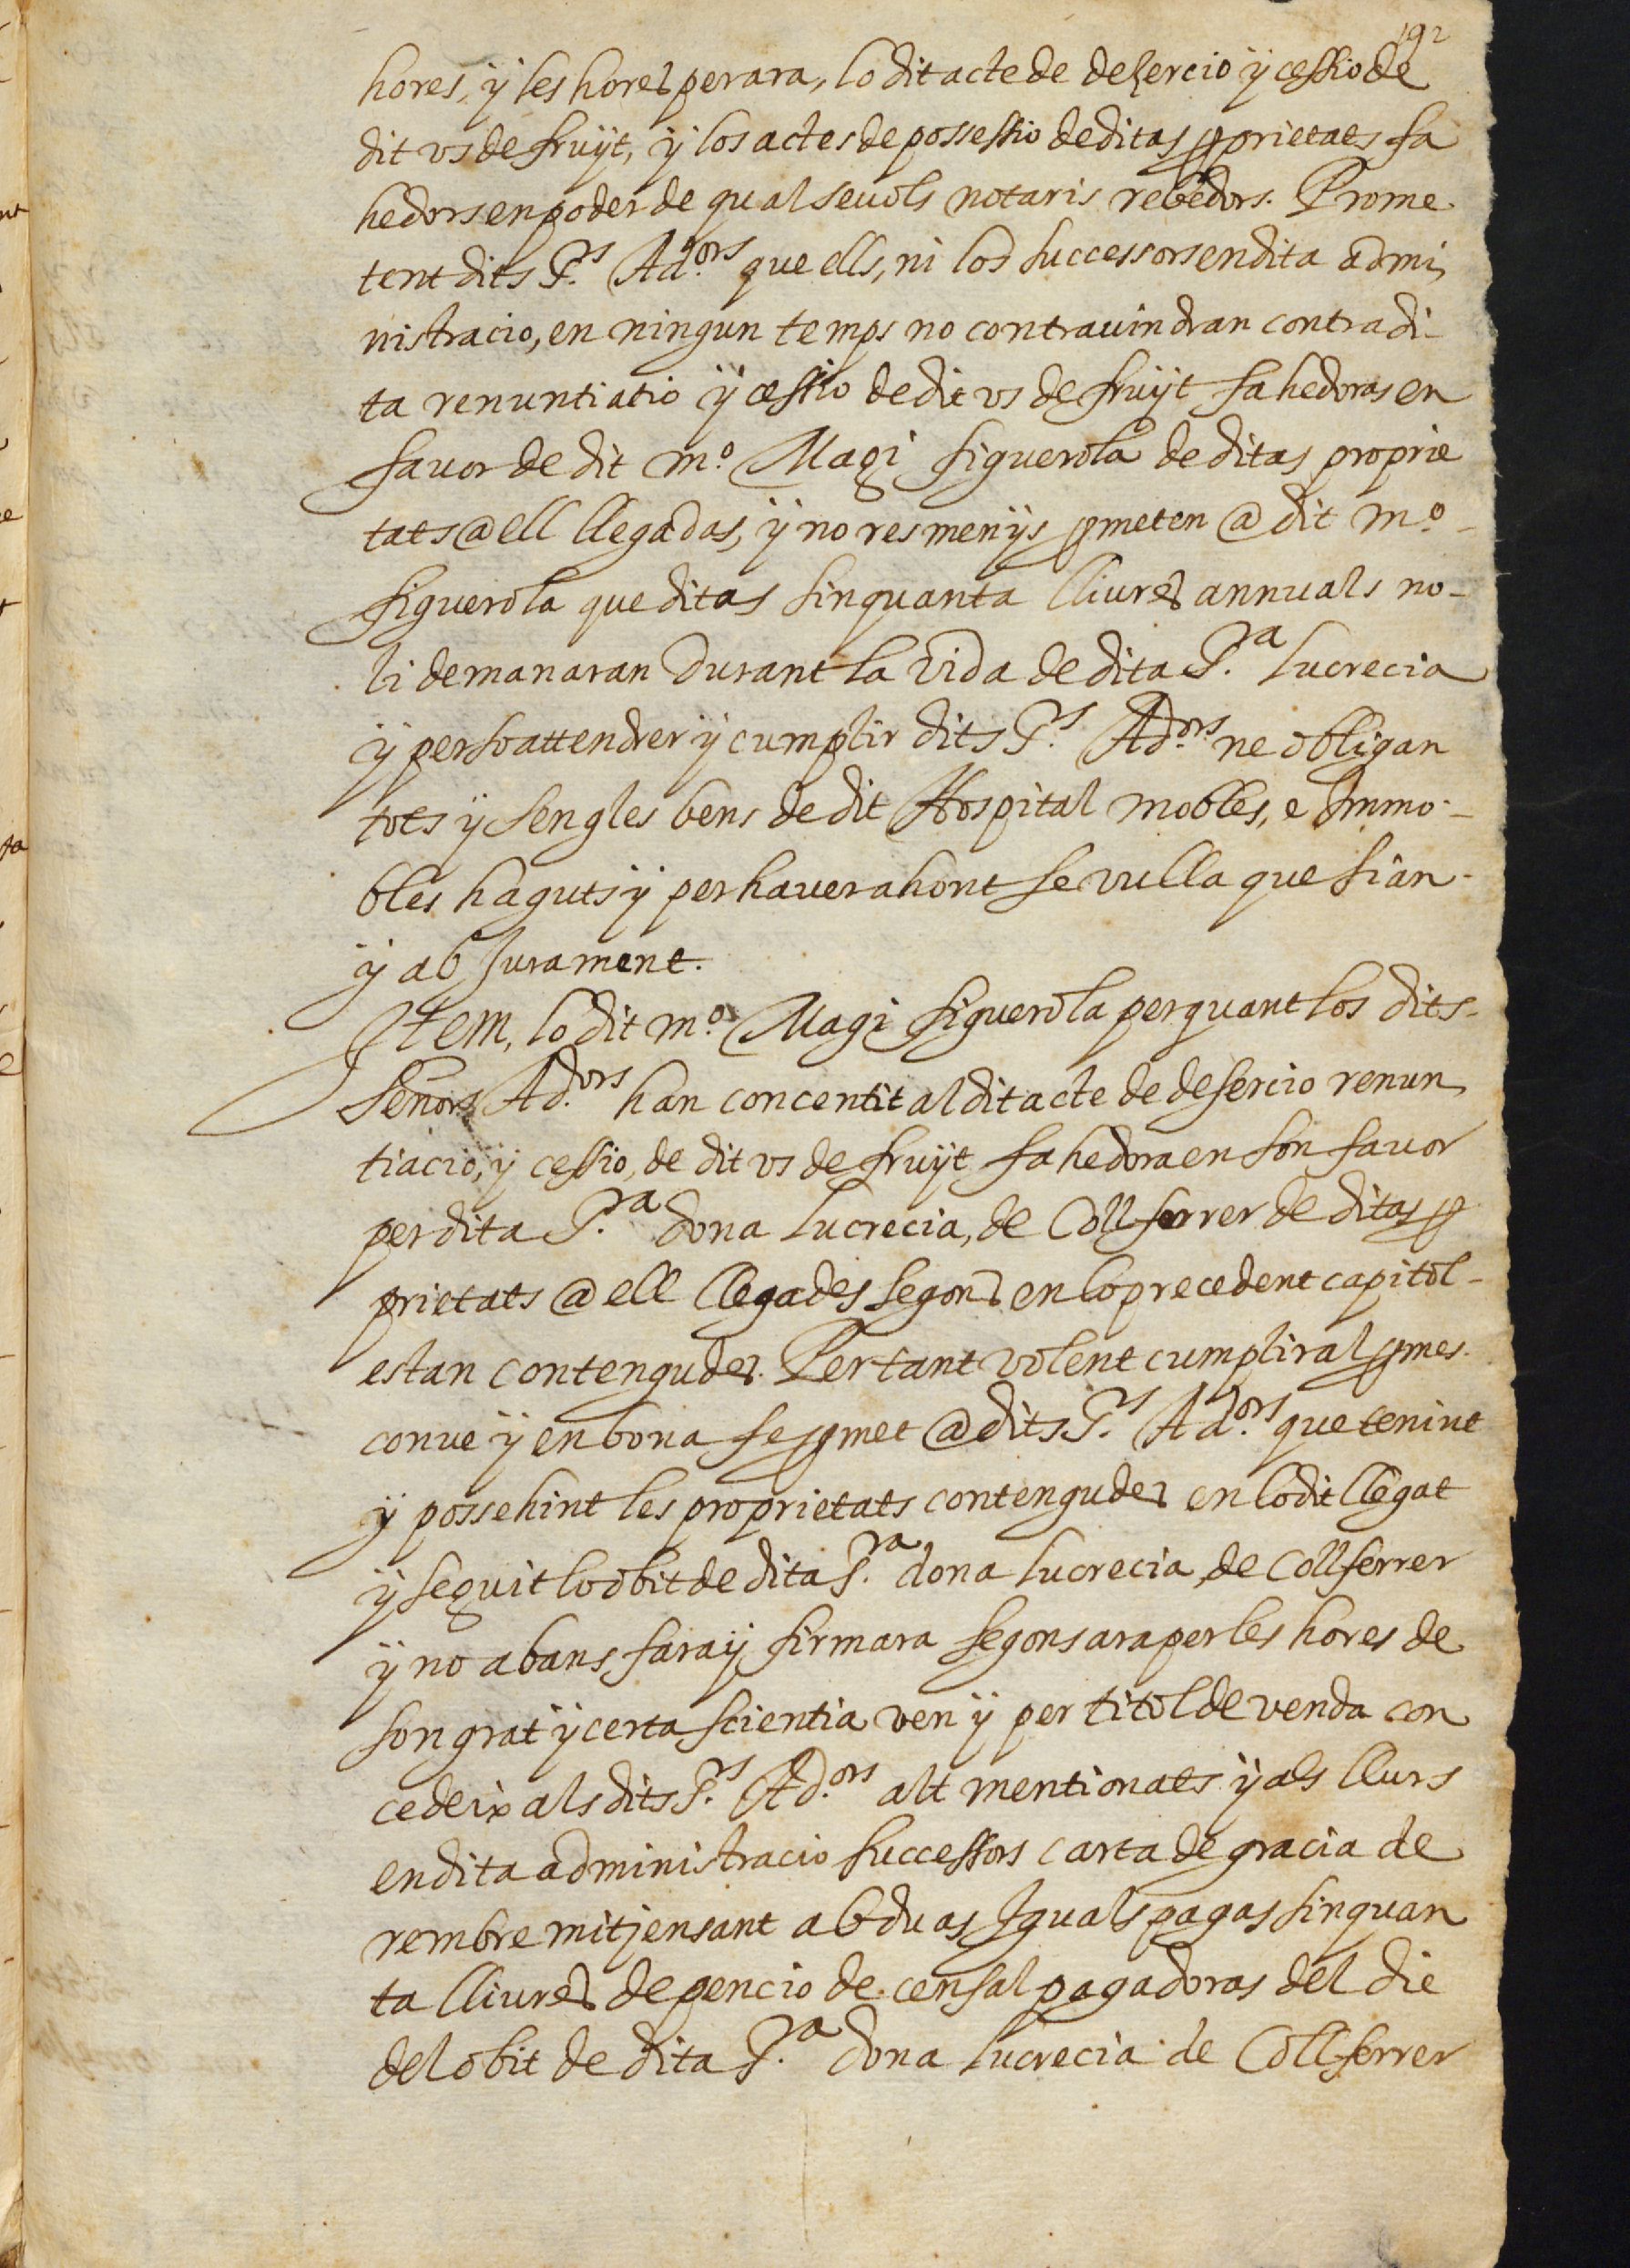 192
hores, ÿ les hores perara, lo dit acte de desercio ÿ cessio de
dit vs de fruÿt, ÿ los actes de possessio de ditas pprietats fa
hedors en poder de qualsevols notaris rebedors. Prome
tent dits S.rs Ad.ors que ells, ni los successors en dita admi
nistracio, en ningun temps no contrauindran contra di-
ta renuntiatio ÿ cessio de dit vs de fruÿt fahedoras en
fauor de dit m.o Magi figuerola de ditas proprie
tats @ ell llegadas, ÿ no res menÿs pmeten @ dit m.o
figuerola que ditas sinquanta lliures annuals no-
li demanaran durant la vida de dita S.ra Lucrecia
ÿ perso attendrer ÿ cumplir dits S.rs Ad.ors ne obligan
tots ÿ sengles bens de dit Hospital mobles, e Immo-
bles haguts ÿ per hauer ahont se vulla que sian-
ÿ ab Jurament.
Item, lo dit m.o Magi figuerola perquant los dits-
Señors Ad.ors han concentit al dit acte de desercio renun
tiacio, ÿ cessio, de dit vs de fruÿt fahedora en son fauor
per dita S.ra dona Lucrecia, de Collferrer de ditas p
prietats @ ell llegades segons en lo precedent capitol-
estan contengudes. Pertant volent cumplir al pmes.
conue ÿ en bona fe pmet @ dits S.rs Ad.ors que tenint
ÿ possehint les proprietats contengudes en lo dit llegat
ÿ seguit lo obit de dita S.ra dona Lucrecia de Collferrer
ÿ no abans fara ÿ firmara segons ara per les hores de
son grat ÿ certa scientia ven ÿ per titol de venda con
cedeix als dits S.rs Ad.ors alt mentionats ÿ als llurs
en dita administracio successors carta de gracia de
rembre mitjensant ab duas Iguals pagas sinquan
ta lliures de pencio de censal pagadoras del die
del obit de dita S.ra dona Lucrecia de Collferrer